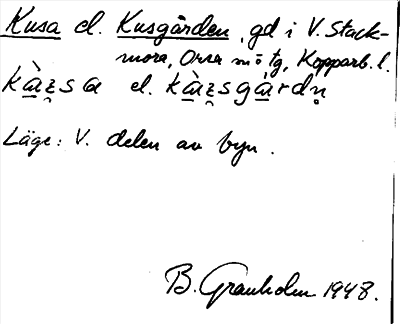 Kusa el. Kusgården, gd i V. Stack-
mora, Orsa sn o tg, Kopparb. l.
el.
Läge: V. delen av byn.
B. Granholm 1948.